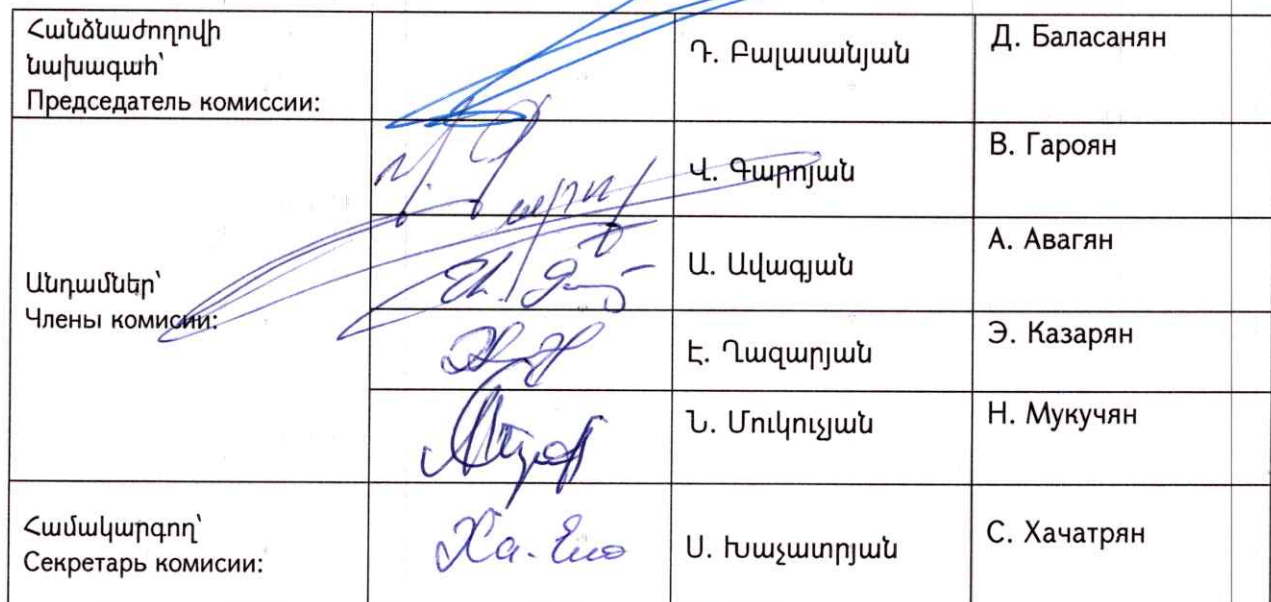 Հանձնաժողովի
նախագահ՝
Председатель комиссии:
Դ. Բալասանյան
Д. Баласанян
Վ. Գարոյան
В. Гароян
Անդամներ՝
Члены комисии:
Ա. Ավագյան
А. Авагян
Է. Ղազարյան
Э. Казарян
Ն. Մուկուչյան
Н. Мукучян
Համակարգող՝
Секретарь комисии:
Ս. Խաչատրյան
С. Хачатрян